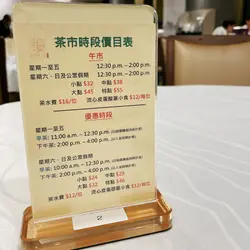 茶市時段價目表
午市
星期一至五 12:30 p.m. – 2:00 p.m.
星期六、日及公眾假期 12:30 p.m. – 2:00 p.m.
小點 $32 中點 $38
大點 $45 特點 $55
茶水費 $16/位 流心皮蛋酸薑小食 $12/每位
優惠時段
星期一至五
早茶: 11:00 a.m. – 12:30 p.m.
下午茶: 2:00 p.m.
星期六、日及公眾假期
早茶: 10:00 a.m. – 12:30 p.m.
下午茶: 2:00 p.m.
小點 $24 中點 $28
大點 $32 特點 $46
茶水費 $12/位 流心皮蛋酸薑小食 $12/每位